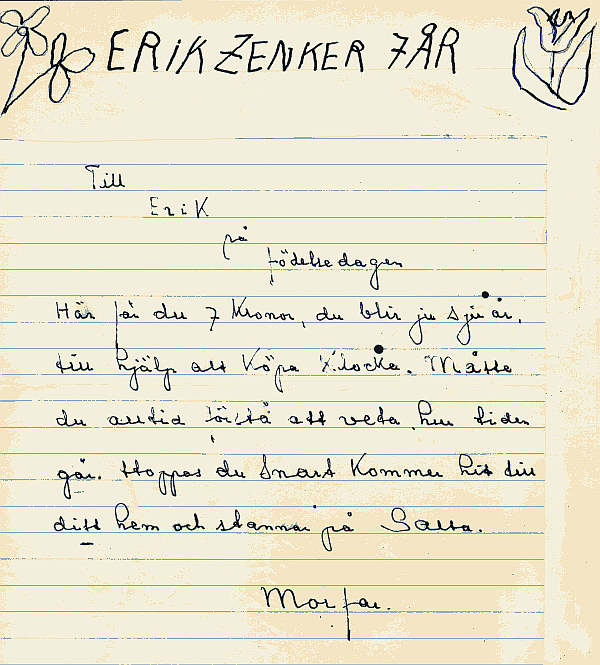 ERIK ZENKER 7 ÅR
Till
Erik
på
födelsedagen
Här får du 7 Kronor, du blir ju sju år,
till hjälp att Köpa Klocka. Måtte
du alltid förstå att veta hur tiden
går. Hoppas du Snart Kommer hit till
ditt hem och stannar på Salta.
Morfar.